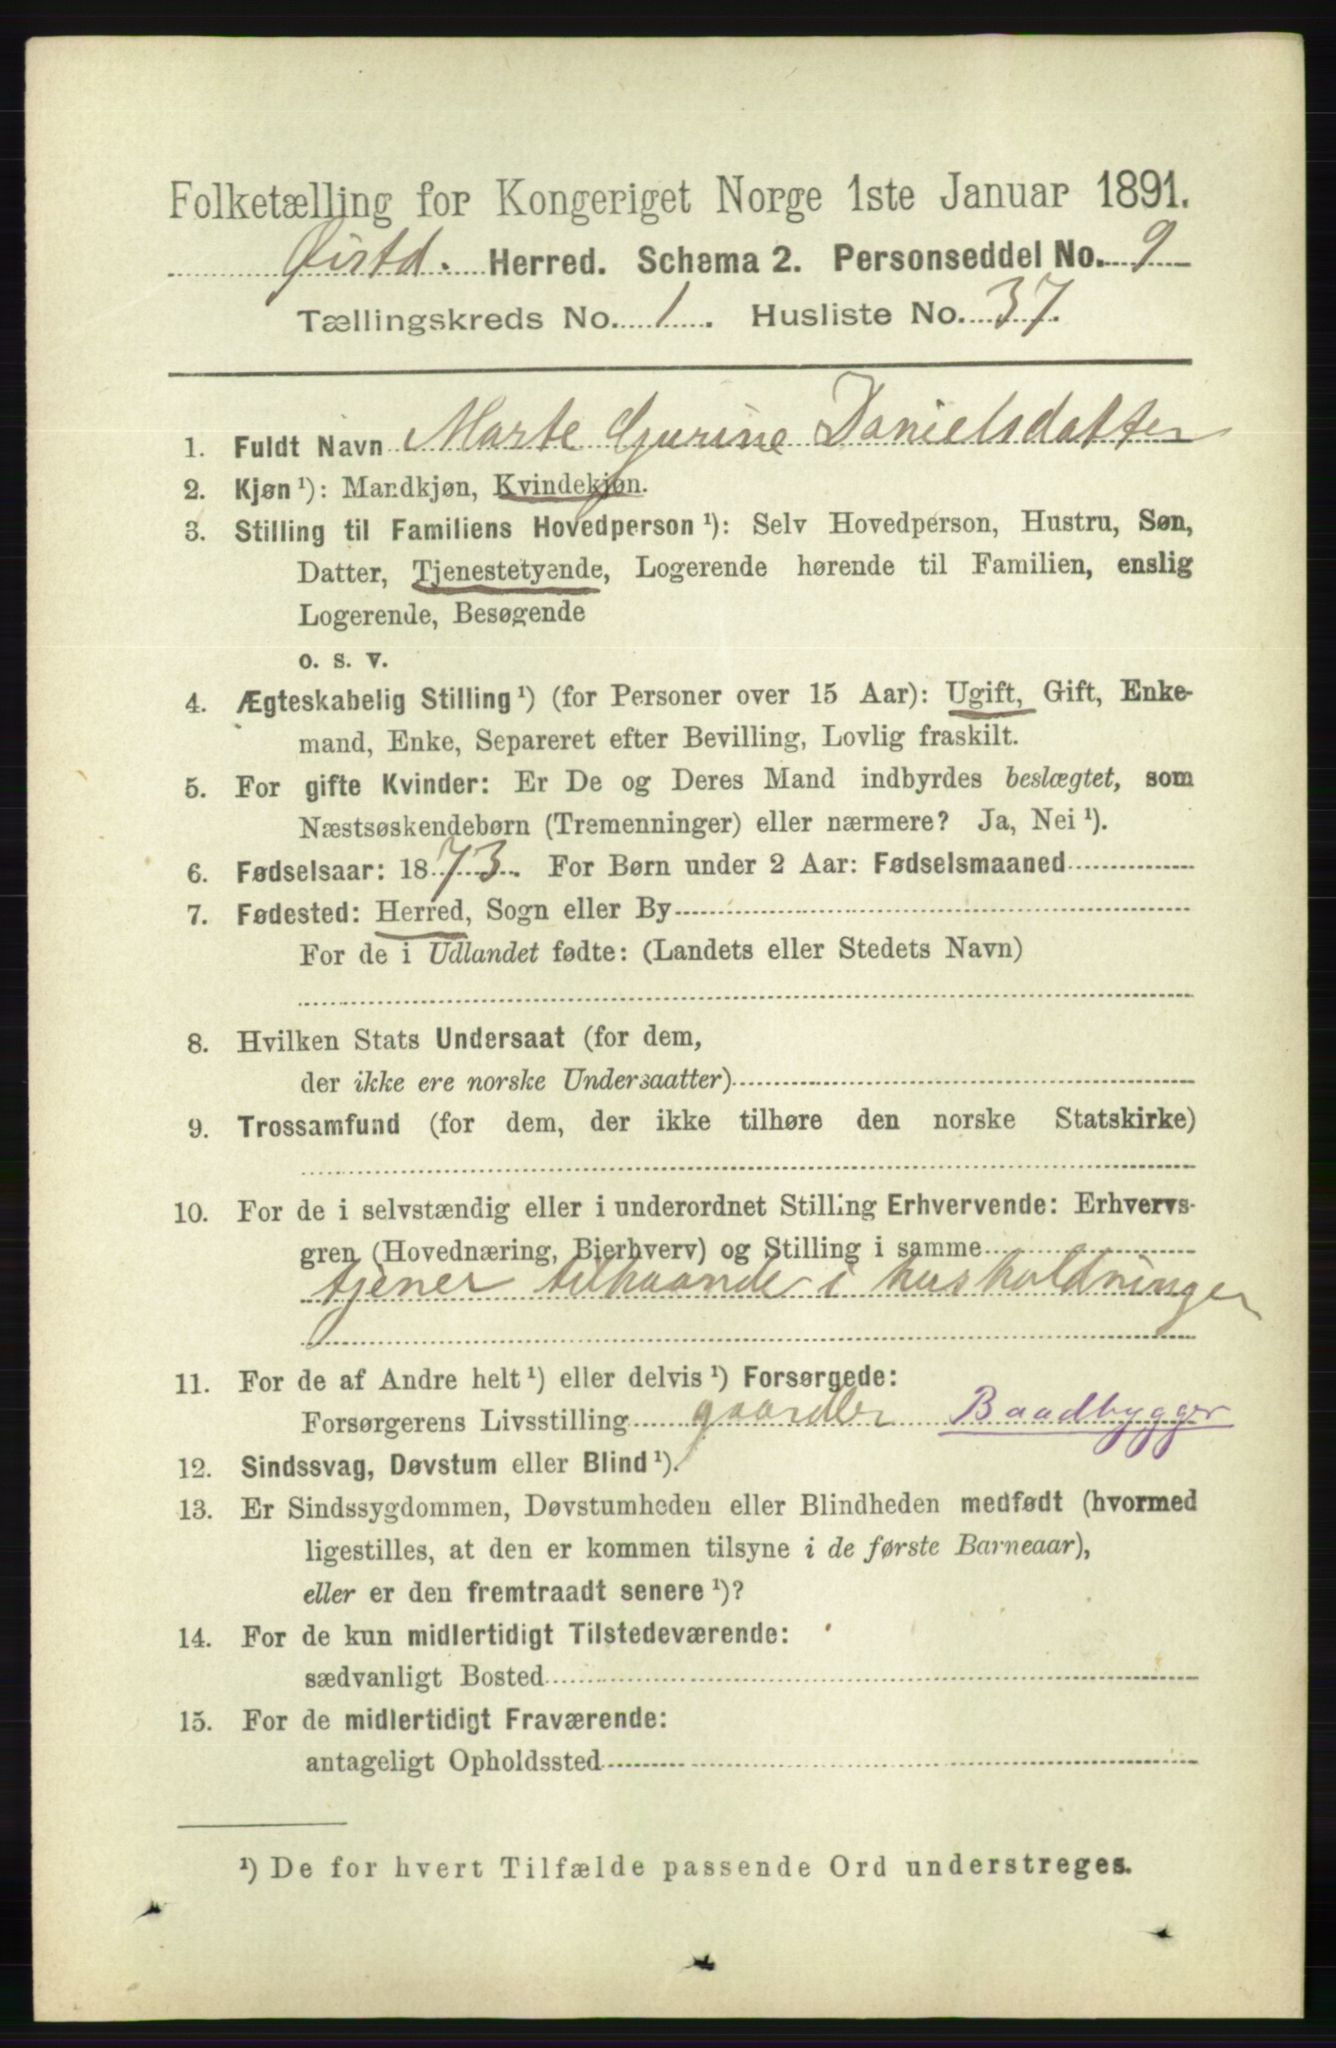 Folketælling for Kongeriget Norge 1ste Januar 1891.
Øistd. Herred. Schema 2. Personseddel No. 9
Tællingskreds No. 1. Husliste No. 37.
1. Fuldt Navn Marte Gurine Danielsdatter
2. Kjøn ¹): Mandkjøn, Kvindekjøn.
3. Stilling til Familiens Hovedperson ¹): Selv Hovedperson, Hustru, Søn,
Datter, Tjenestetyende, Logerende hørende til Familien, enslig
Logerende, Besøgende
o. s. v.
4. Ægteskabelig Stilling ¹) (for Personer over 15 Aar): Ugift, Gift, Enke-
mand, Enke, Separeret efter Bevilling, Lovlig fraskilt.
5. For gifte Kvinder: Er De og Deres Mand indbyrdes beslægtet, som
Næstsøskendebørn (Tremenninger) eller nærmere? Ja, Nei ¹).
6. Fødselsaar: 1873. For Børn under 2 Aar: Fødselsmaaned
7. Fødested: Herred, Sogn eller By
For de i Udlandet fødte: (Landets eller Stedets Navn)
8. Hvilken Stats Undersaat (for dem,
der ikke ere norske Undersaatter)
9. Trossamfund (for dem, der ikke tilhøre den norske Statskirke)
10. For de i selvstændig eller i underordnet Stilling Erhvervende: Erhvervs-
gren (Hovednæring, Bierhverv) og Stilling i samme
tjener tilhaande i husholdninger
11. For de af Andre helt ¹) eller delvis ¹) Forsørgede:
Forsørgerens Livsstilling Baadbygger
12. Sindssvag, Døvstum eller Blind ¹).
13. Er Sindssygdommen, Døvstumheden eller Blindheden medfødt (hvormed
ligestilles, at den er kommen tilsyne i de første Barneaar),
eller er den fremtraadt senere ¹)?
14. For de kun midlertidigt Tilstedeværende:
sædvanligt Bosted
15. For de midlertidigt Fraværende:
antageligt Opholdssted
¹) De for hvert Tilfælde passende Ord understreges.